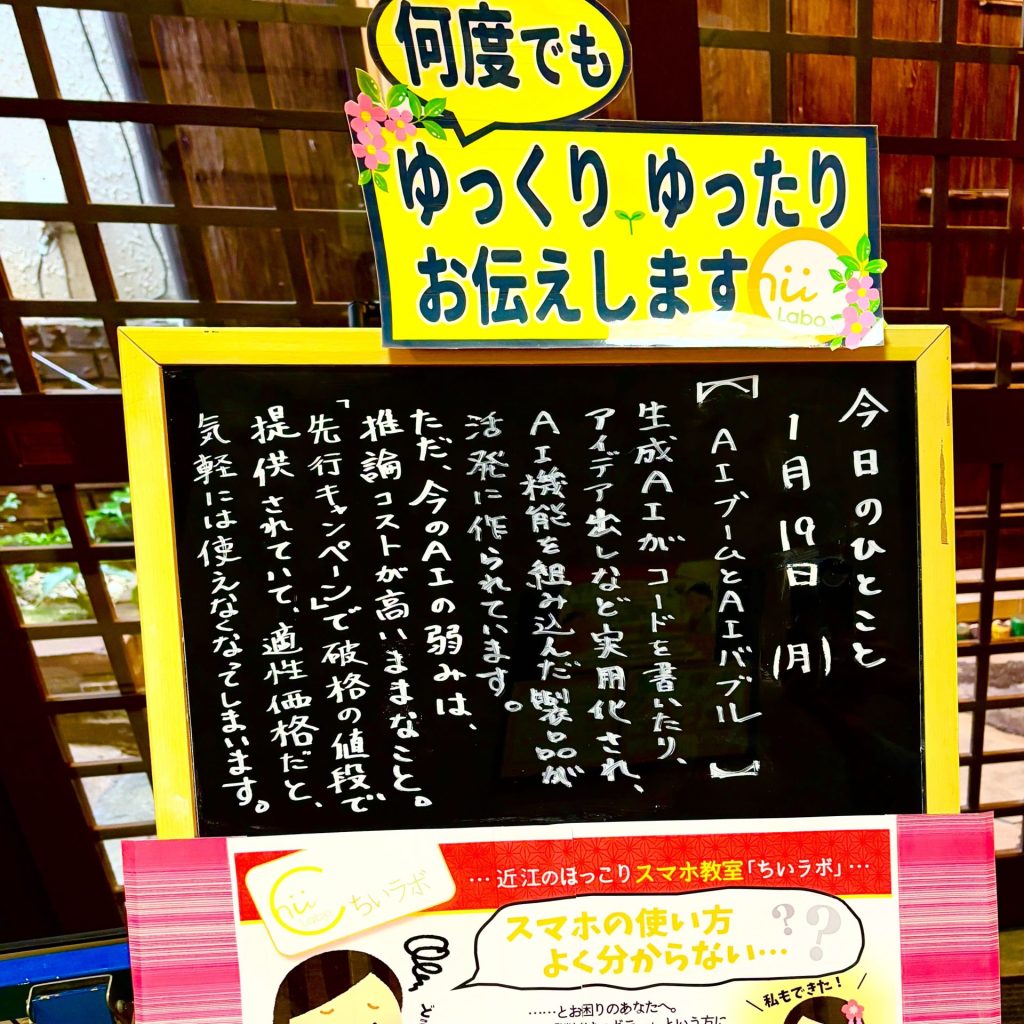 何度でも
ゆっくり ゆったり
お伝えします
Chii
Labo
今日のひとこと
1月19日(月)
【AIブームとAIバブル】
生成AIがコードを書いたり、
アイデア出しなど実用化され、
AI機能を組み込んだ製品が
活発に作られています。
ただ、今のAIの弱みは、
推論コストが高いままなこと。
「先行キャンペーン」で破格の値段で
提供されていて、適性価格だと、
気軽には使えなくなってしまいます。
…近江のほっこりスマホ教室「ちいラボ」…
Chii
Labo
ちいラボ
スマホの使い方
よく分からない…
??
……とお困りのあなたへ。
私もできた!